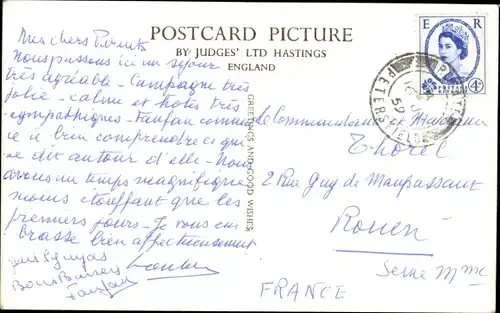 POSTCARD PICTURE
BY JUDGES' LTD HASTINGS
ENGLAND
GREETINGS AND GOOD WISHES
E R
4D
PETERSFIELD
Mes chers Parents
Nous passons ici un séjour
très agréable - Campagne très
jolie - calme et hôtes très
sympathiques - Fanfan commence
à bien comprendre ce qui
se dit autour d'elle - Nous
avons un temps magnifique
moins étouffant que les
premiers jours - Je vous em
brasse bien affectueusement
Bons Baisers
Fanfan
Commandant et Madame
Thorel
2 Rue Guy de Maupassant
Rouen
Seine Mme
FRANCE